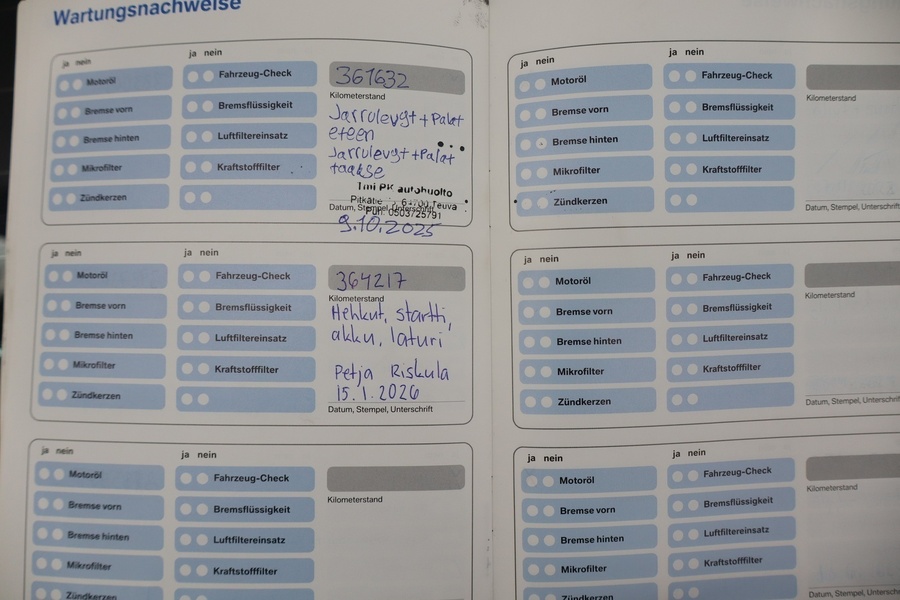 Wartungsnachweise
ja nein
ja nein
Motoröl
Fahrzeug-Check
361632
Kilometerstand
Bremse vorn
Bremsflüssigkeit
Jarrulevyt + Palat
eteen
Bremse hinten
Luftfiltereinsatz
Jarrulevyt + Palat
taakse
Mikrofilter
Kraftstofffilter
Zündkerzen
Tmi PK autohuolto
Datum, Stempel, Unterschrift
Puh. 0503725791
9.10.2025
ja nein
ja nein
Motoröl
Fahrzeug-Check
364217
Kilometerstand
Bremse vorn
Bremsflüssigkeit
Hehkut, startti,
Bremse hinten
Luftfiltereinsatz
akku, laturi
Mikrofilter
Kraftstofffilter
Petja Riskula
Zündkerzen
15.1.2026
Datum, Stempel, Unterschrift
ja nein
ja nein
Motoröl
Fahrzeug-Check
Kilometerstand
Bremse vorn
Bremsflüssigkeit
Bremse hinten
Luftfiltereinsatz
Mikrofilter
Kraftstofffilter
Zündkerzen
ja nein
ja nein
Motoröl
Fahrzeug-Check
Kilometerstand
Bremse vorn
Bremsflüssigkeit
Bremse hinten
Luftfiltereinsatz
Mikrofilter
Kraftstofffilter
Zündkerzen
Datum, Stempel, Unterschrift
ja nein
ja nein
Motoröl
Fahrzeug-Check
Kilometerstand
Bremse vorn
Bremsflüssigkeit
Bremse hinten
Luftfiltereinsatz
Mikrofilter
Kraftstofffilter
Zündkerzen
Datum, Stempel, Unterschrift
ja nein
ja nein
Motoröl
Fahrzeug-Check
Kilometerstand
Bremse vorn
Bremsflüssigkeit
Bremse hinten
Luftfiltereinsatz
Mikrofilter
Kraftstofffilter
Zündkerzen
Datum, Stempel, Unterschrift